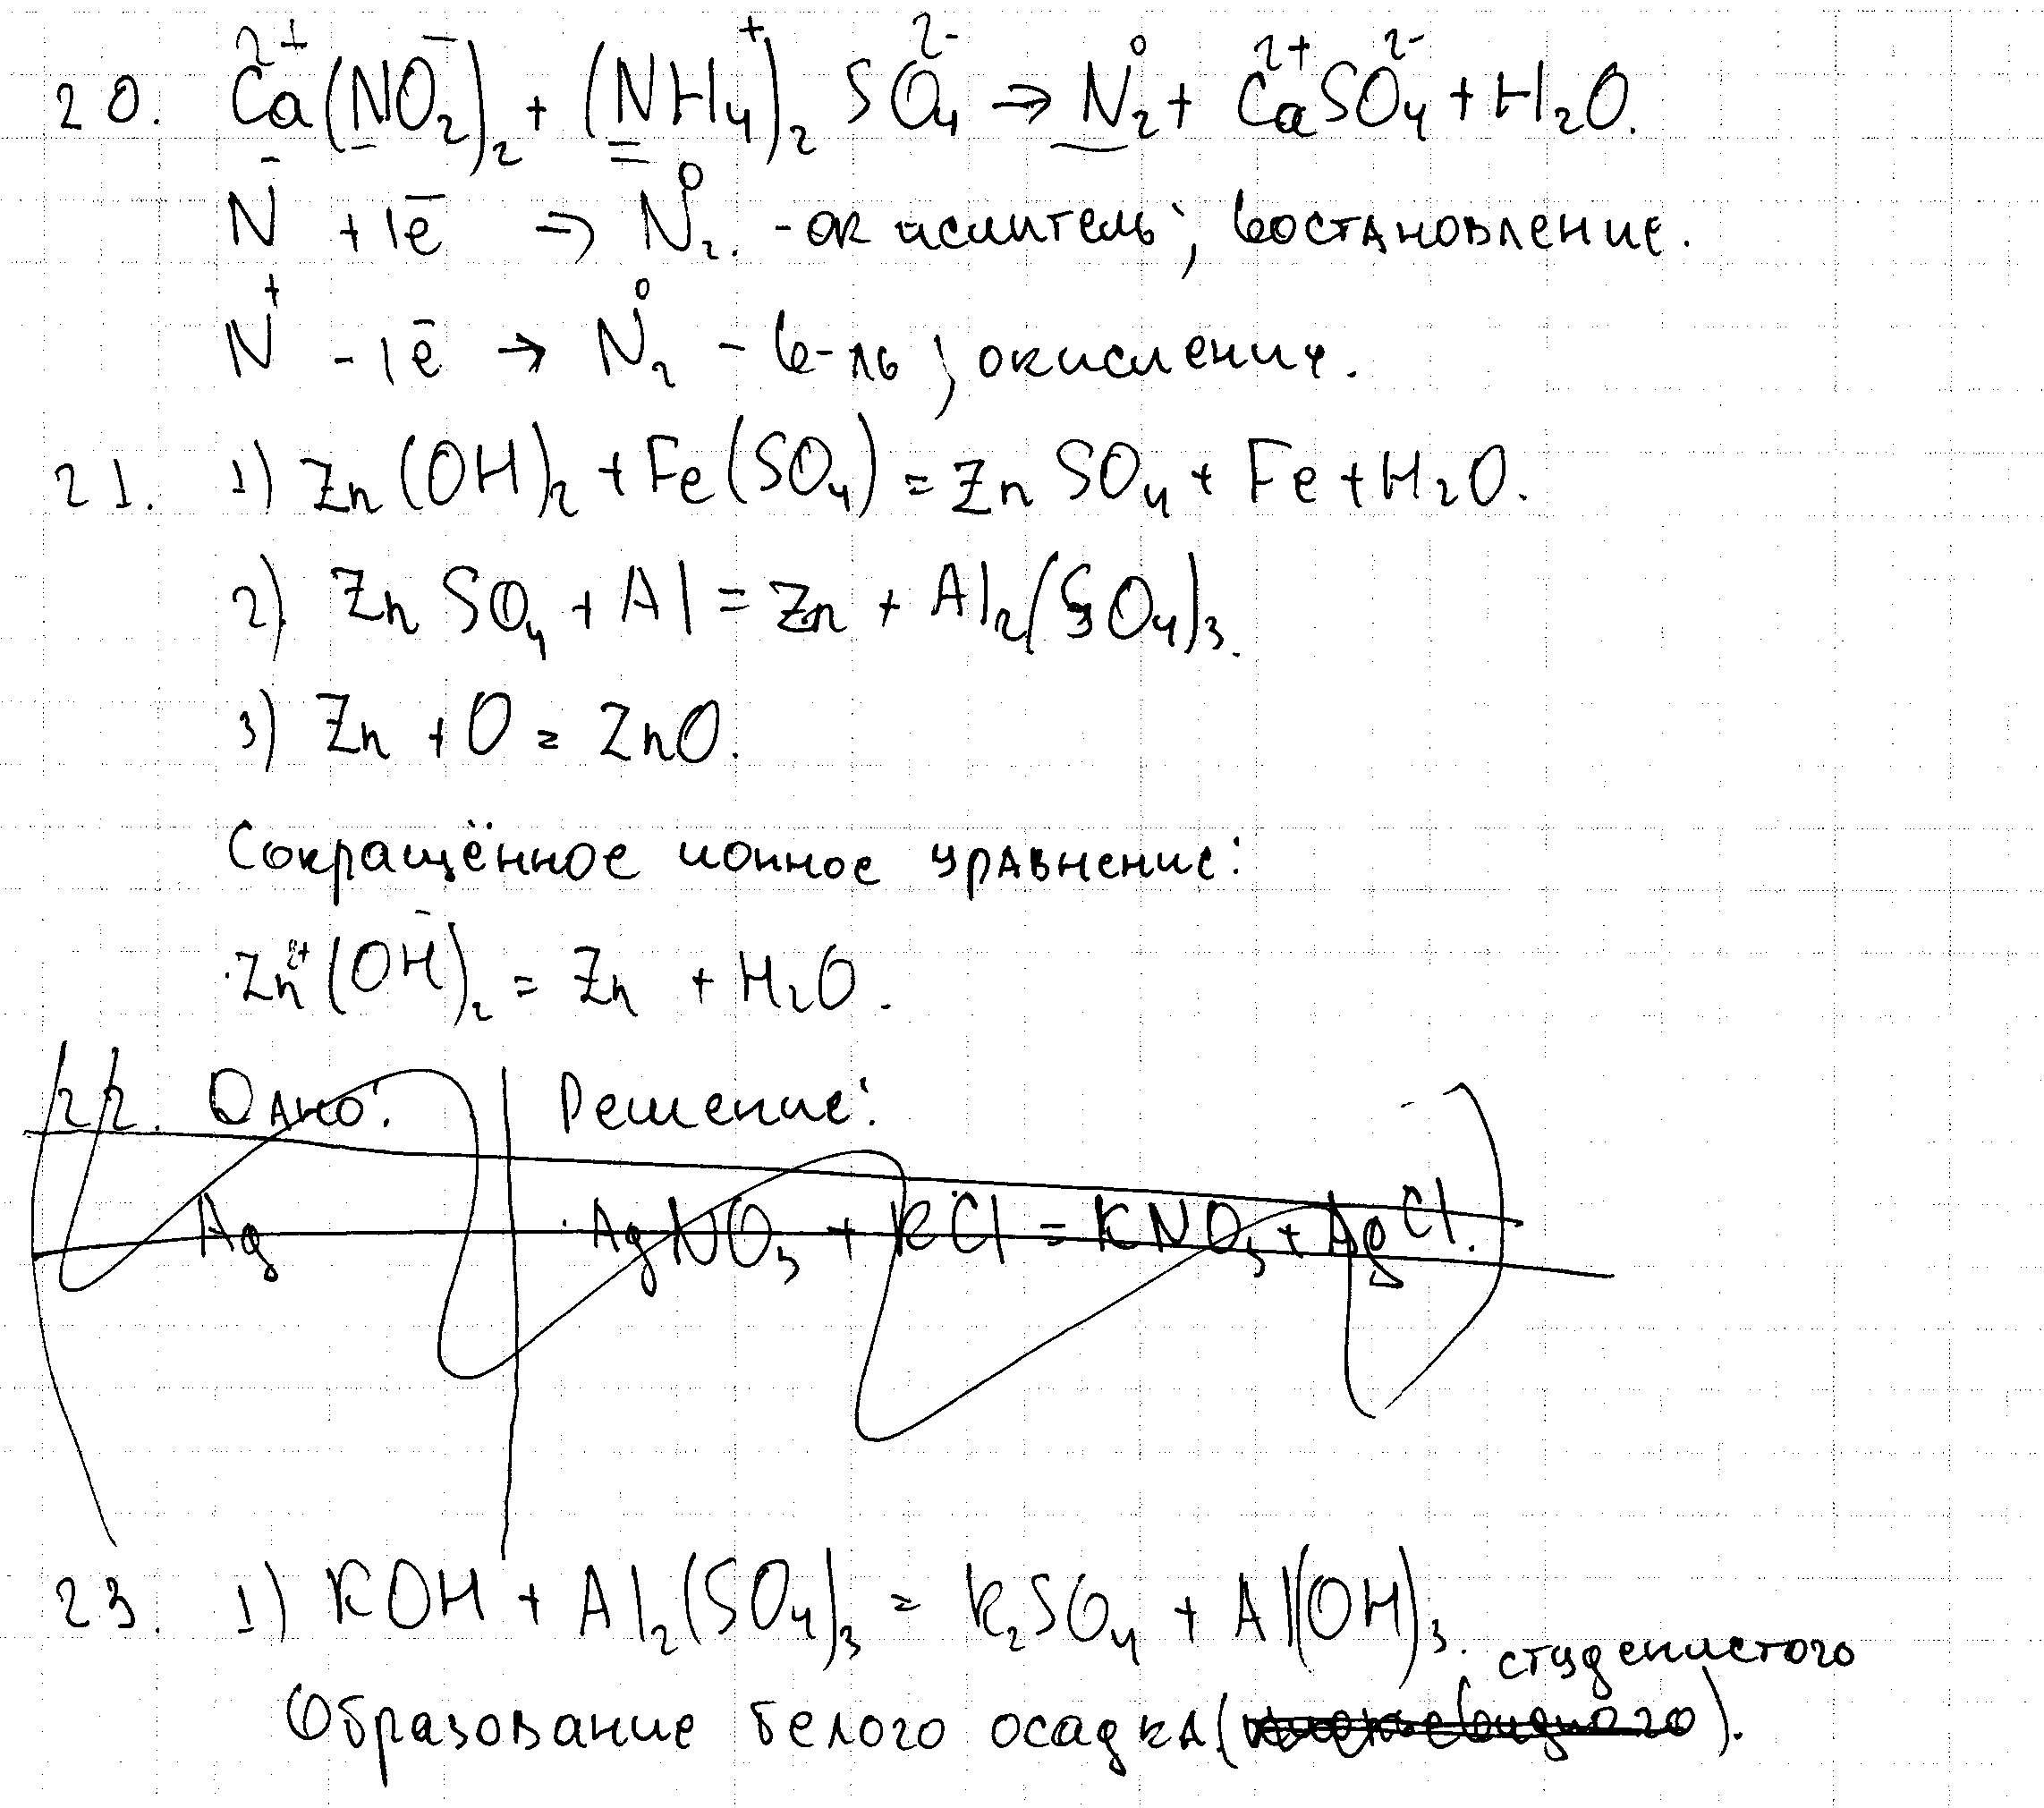 20. Ca²⁺(NO₂⁻)₂ + (NH₄⁺)₂ SO₄²⁻ → N₂⁰ + Ca²⁺SO₄²⁻ + H₂O.
N⁻ + 1e̅ → N₂⁰. - окислитель; востановление.
N⁺ - 1e̅ → N₂⁰ - в-ль; окисление.
21. 1) Zn(OH)₂ + Fe(SO₄) = ZnSO₄ + Fe + H₂O.
2) ZnSO₄ + Al = Zn + Al₂(SO₄)₃.
3) Zn + O = ZnO.
Сокращённое ионное уравнение:
Zn²⁺(OH⁻)₂ = Zn + H₂O.
22. Дано: Решение:
Ag AgNO₃ + KCl = KNO₃ + AgCl.
23. 1) KOH + Al₂(SO₄)₃ = K₂SO₄ + Al(OH)₃.
студенистого
Образование белого осадка ( ).